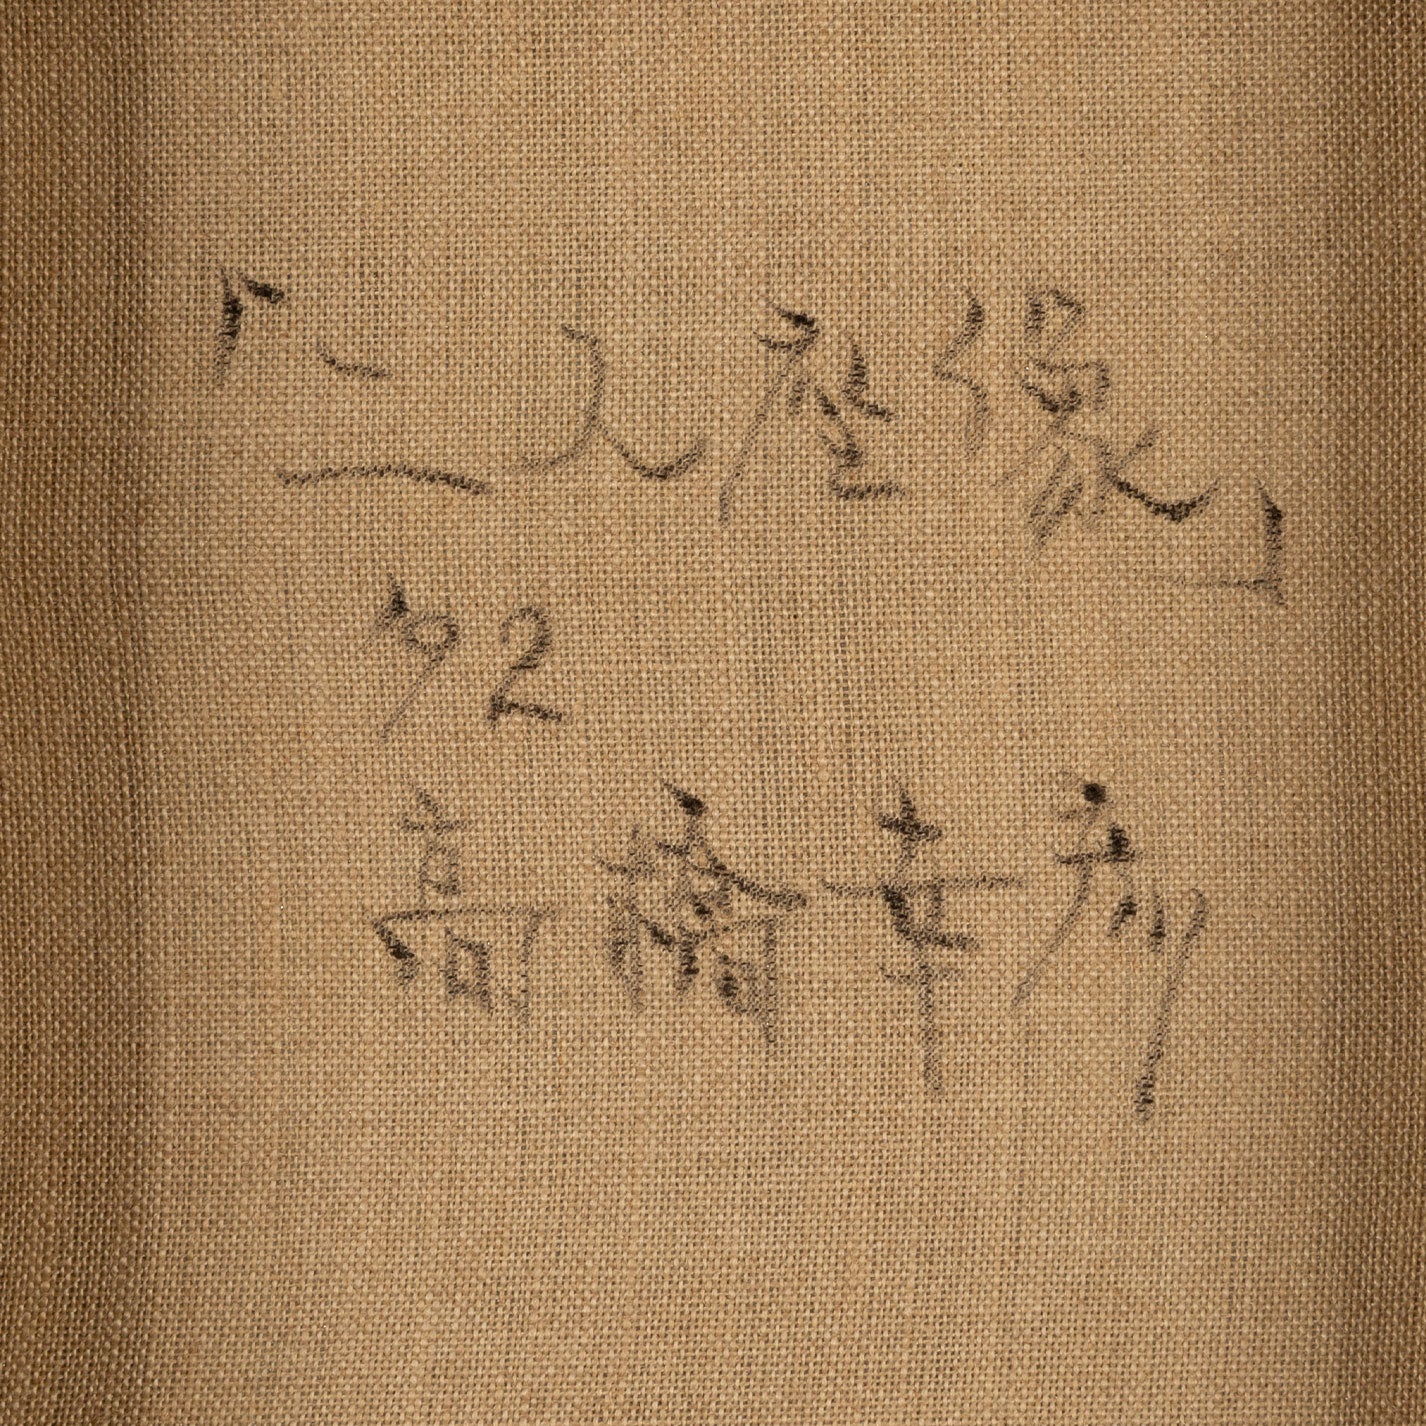 「二人座像」
'92
高橋幸彦